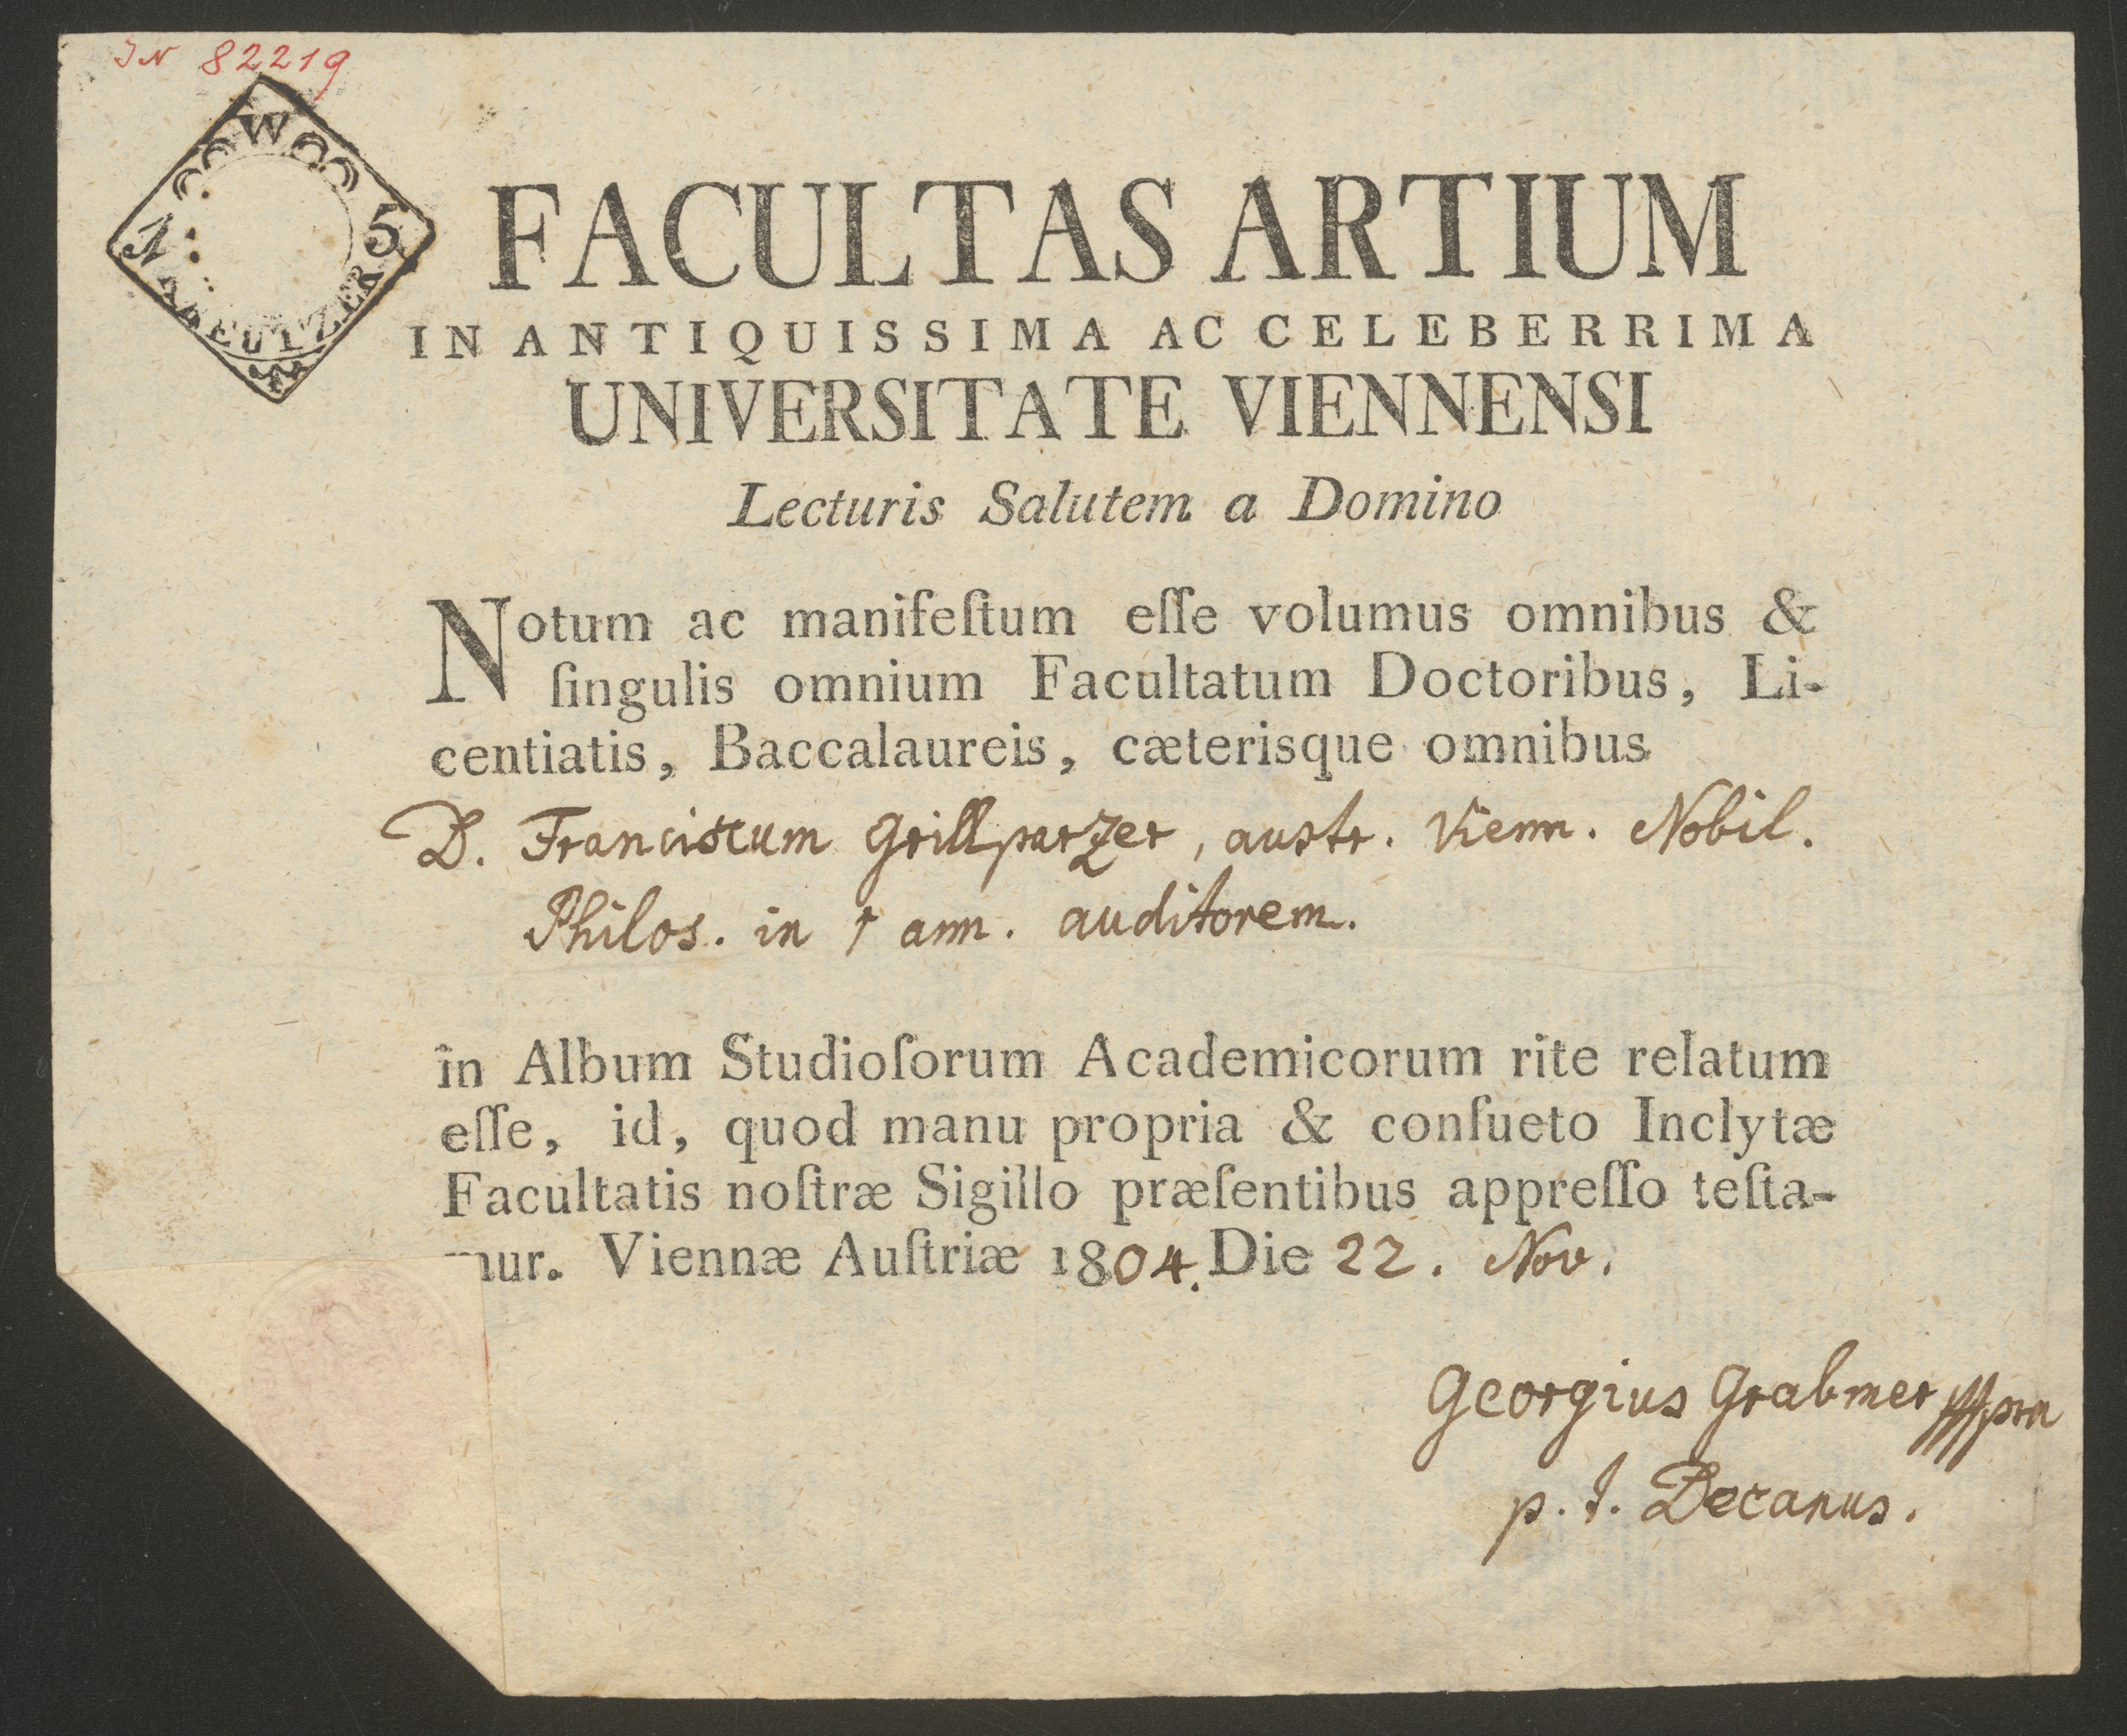 IN 82219
W
15
KREUTZER
FACULTAS ARTIUM
IN ANTIQUISSIMA AC CELEBERRIMA
UNIVERSITATE VIENNENSI
Lecturis Salutem a Domino
Notum ac manifeſtum eſſe volumus omnibus &
ſingulis omnium Facultatum Doctoribus, Li-
centiatis, Baccalaureis, cæterisque omnibus
D. Franciscum Grillparzer, austr. Vienn. Nobil.
Philos. in 1 ann. auditorem.
in Album Studioſorum Academicorum rite relatum
eſſe, id, quod manu propria & conſueto Inclytæ
Facultatis noſtræ Sigillo præſentibus appreſſo teſta-
mur. Viennæ Auſtriæ 1804. Die 22. Nov.
Georgius Grabmer
p. t. Decanus.